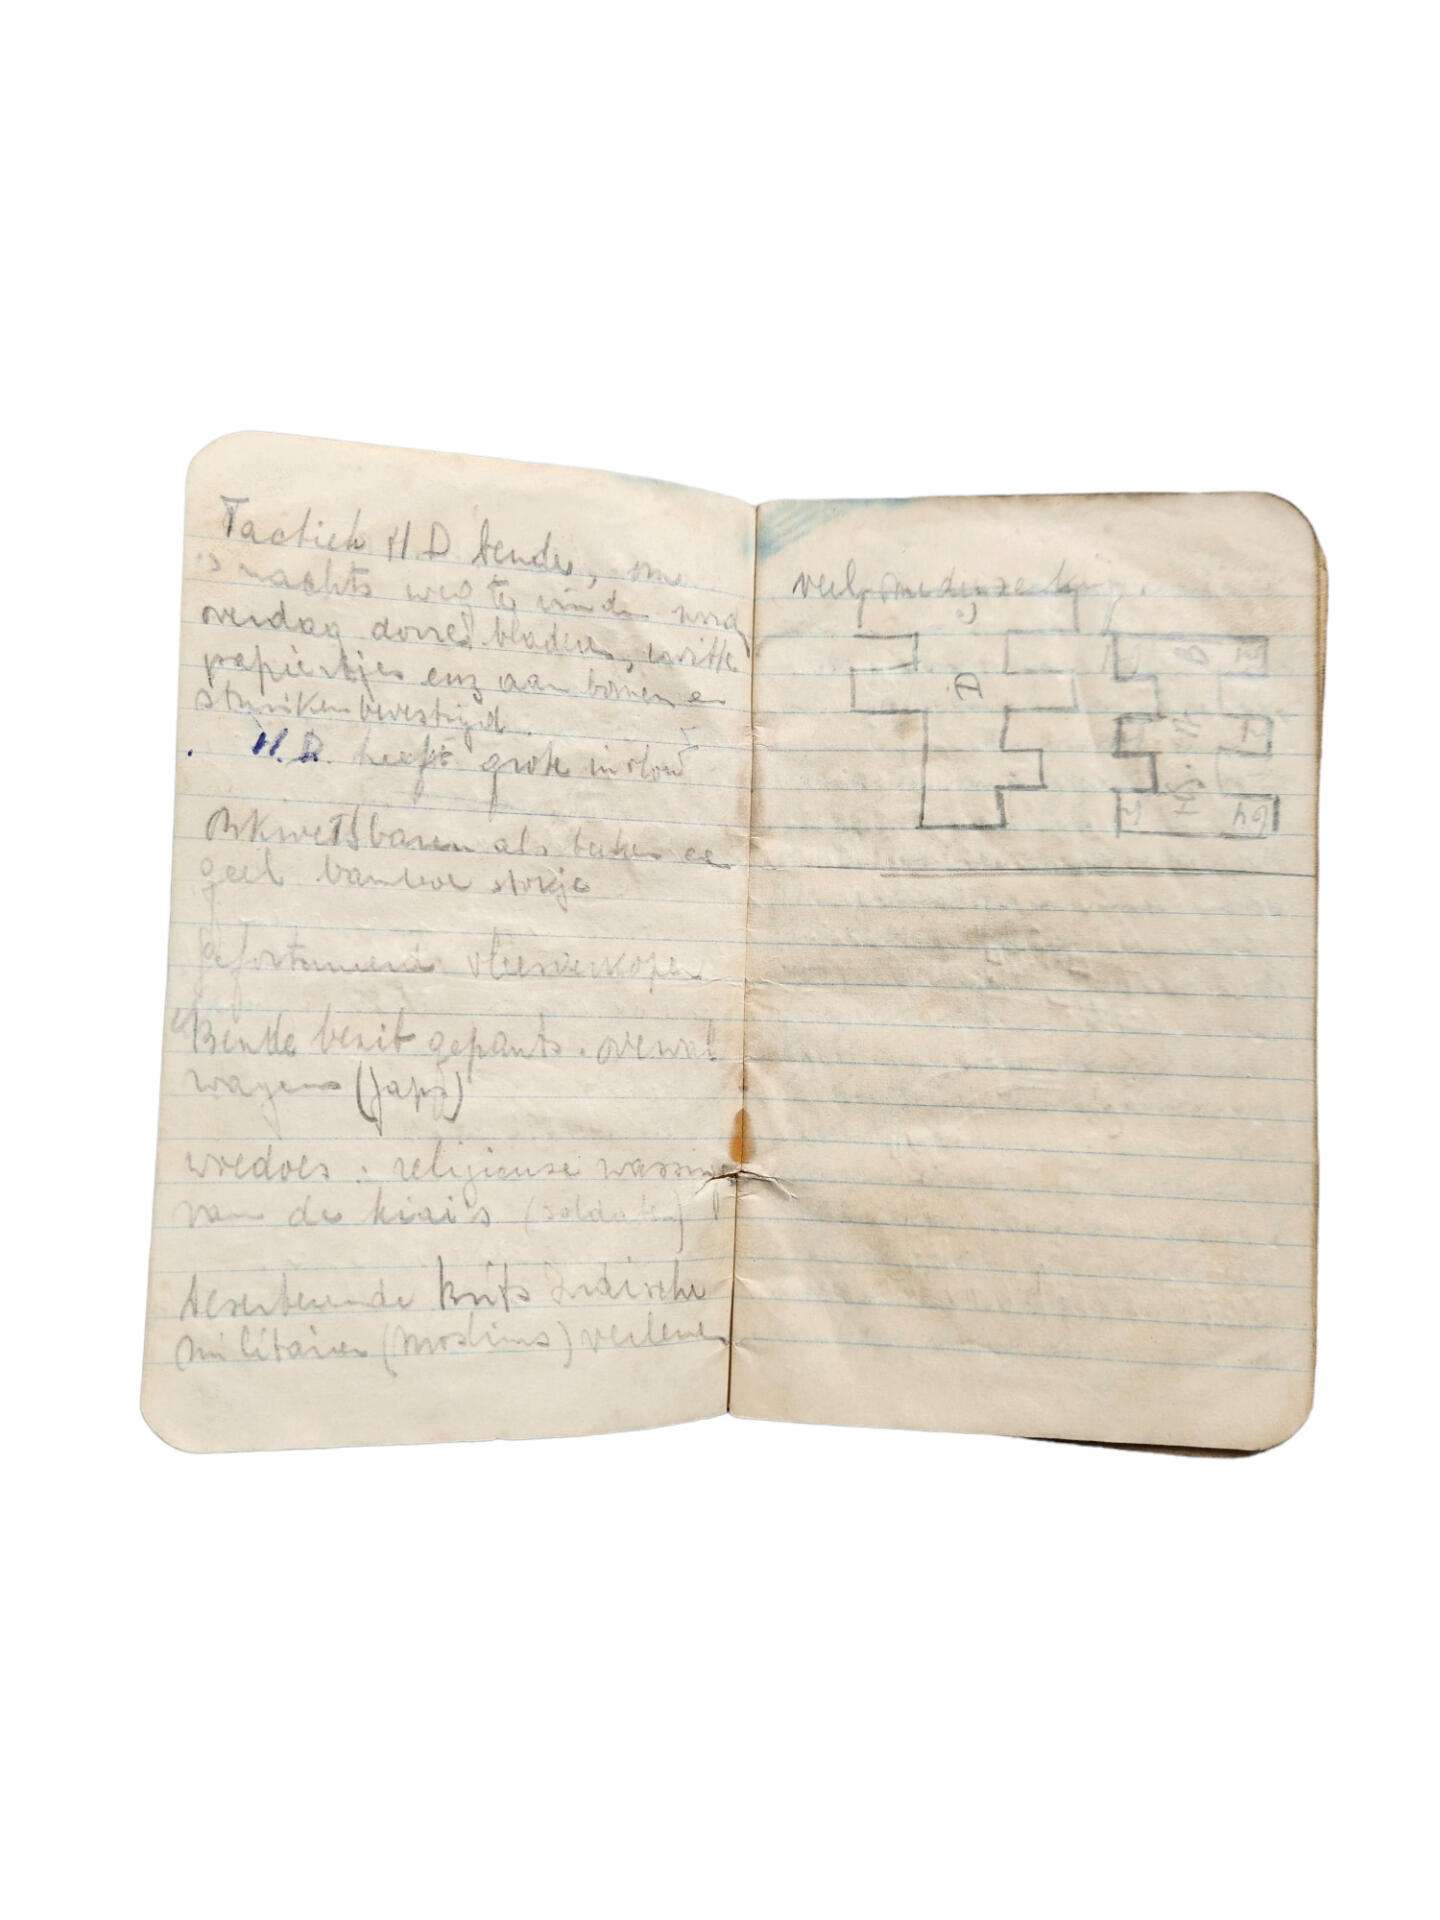 Tactiek H D bende, om
's nachts weg te vinden word
overdag dorre bladeren, witte
papiertjes enz aan bomen en
struiken bevestigd.
H.D. heeft grote invloed
als teken een
geel bamboe stokje
vleesverkoper
Bende bezit gepants. overval
wagens (Japs)
wedoes : religieuse wassing
van de kiai's (soldaten)
deserterende Brits Indische
militairen (moslims) verlenen
veel
A
B